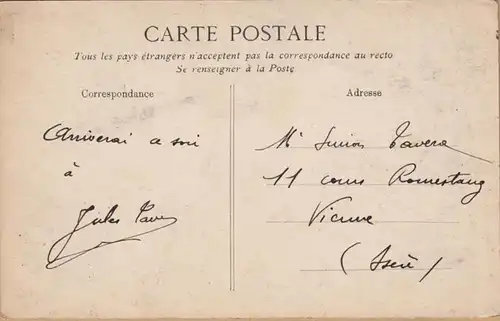 CARTE POSTALE
Tous les pays étrangers n'acceptent pas la correspondance au recto
Se renseigner à la Poste
Correspondance
Adresse
Arriverai ce soir
à
Jules
Mr Tavera
11 cours Romestang
Vienne
(Isère)